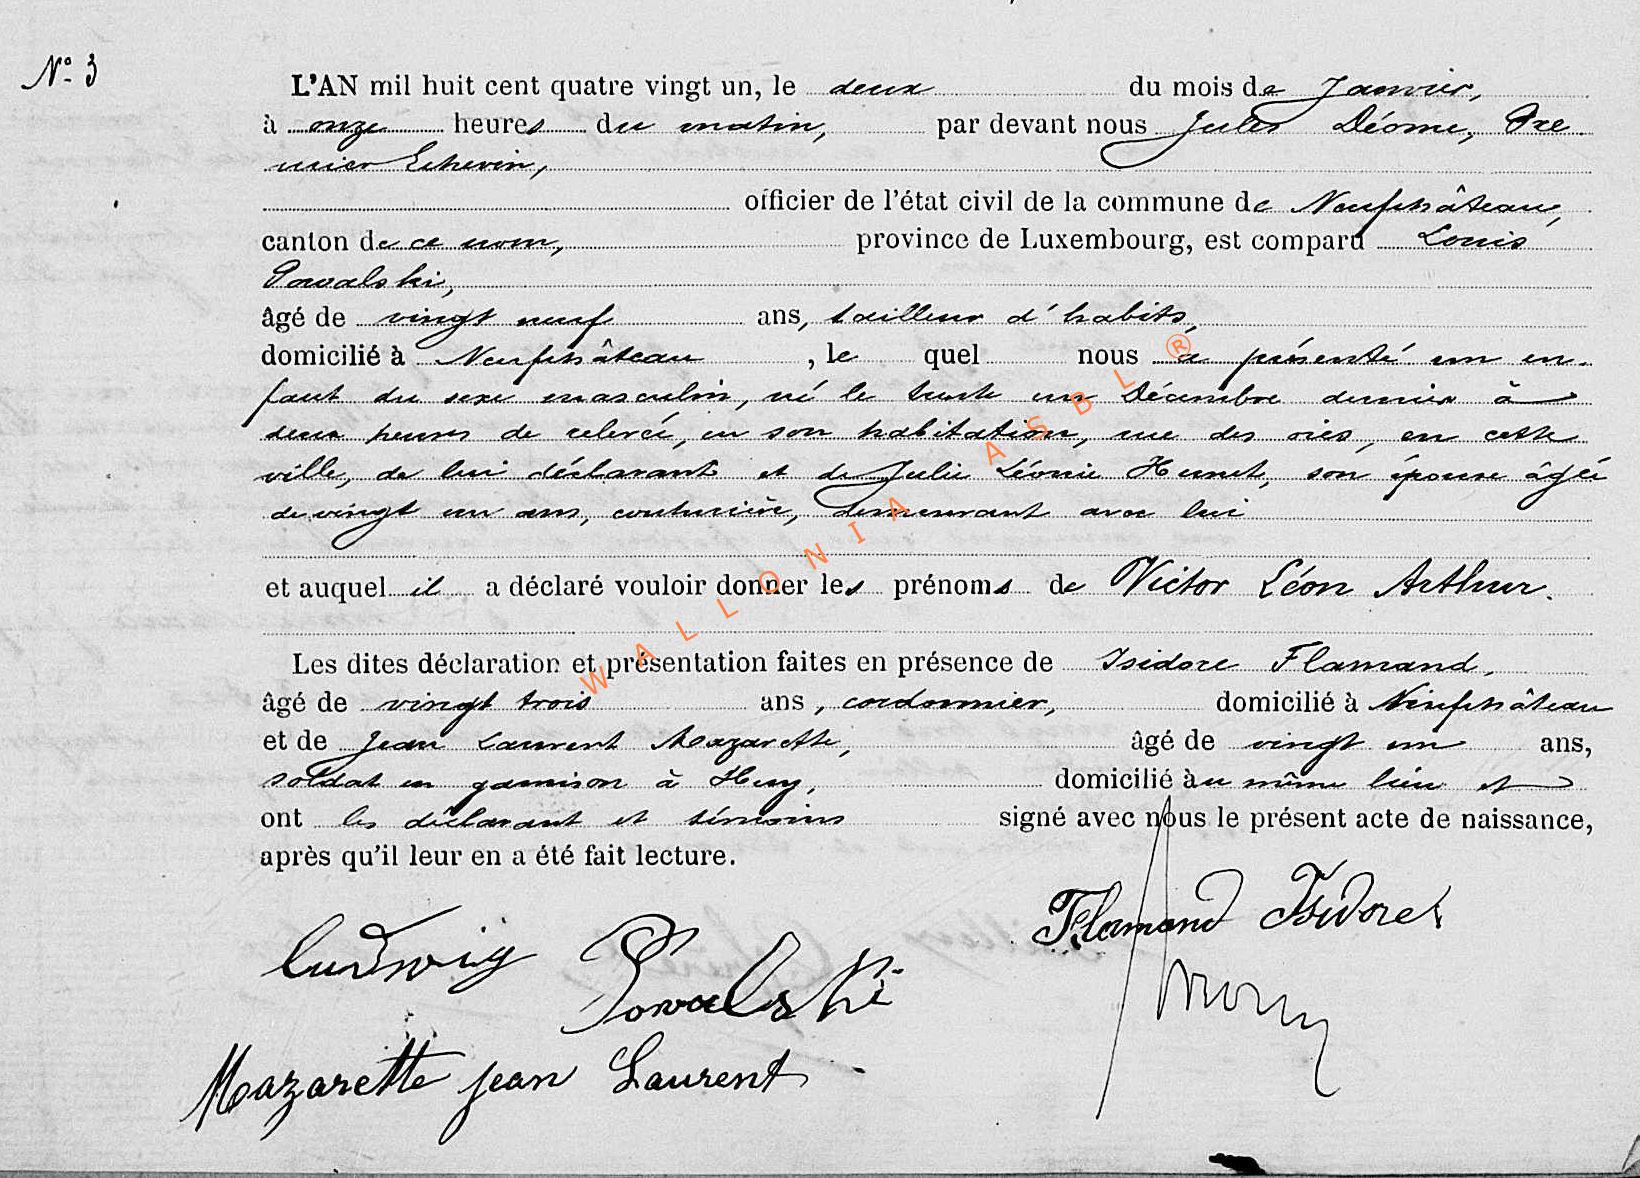 N° 3
L'AN mil huit cent quatre vingt un, le deux du mois de Janvier,
à onze heures du matin, par devant nous Jules Déome, Pre
mier Echevin,
officier de l'état civil de la commune de Neufchâteau,
canton de ce nom, province de Luxembourg, est comparu Louis
Powalski,
âgé de vingt neuf ans, tailleur d'habits,
domicilié à Neufchâteau, le quel nous a présenté un en-
fant du sexe masculin, né le trente un Décembre dernier à
deux heures de relevée, en son habitation, rue des oies, en cette
ville, de lui déclarant et de Julie Léonie Hunet, son épouse âgée
de vingt un ans, couturière, demeurant avec lui
et auquel il a déclaré vouloir donner les prénoms de Victor Léon Arthur.
Les dites déclaration et présentation faites en présence de Isidore Flamand,
âgé de vingt trois ans, cordonnier, domicilié à Neufchâteau
et de Jean Laurent Mazarette, âgé de vingt un ans,
soldat en garnison à Huy, domicilié au même lieu et
ont les déclarant et témoins signé avec nous le présent acte de naissance,
après qu'il leur en a été fait lecture.
Flamand Isidore
Ludwig Powalski
Mazarette jean Laurent
WALLONIA ASBL ®